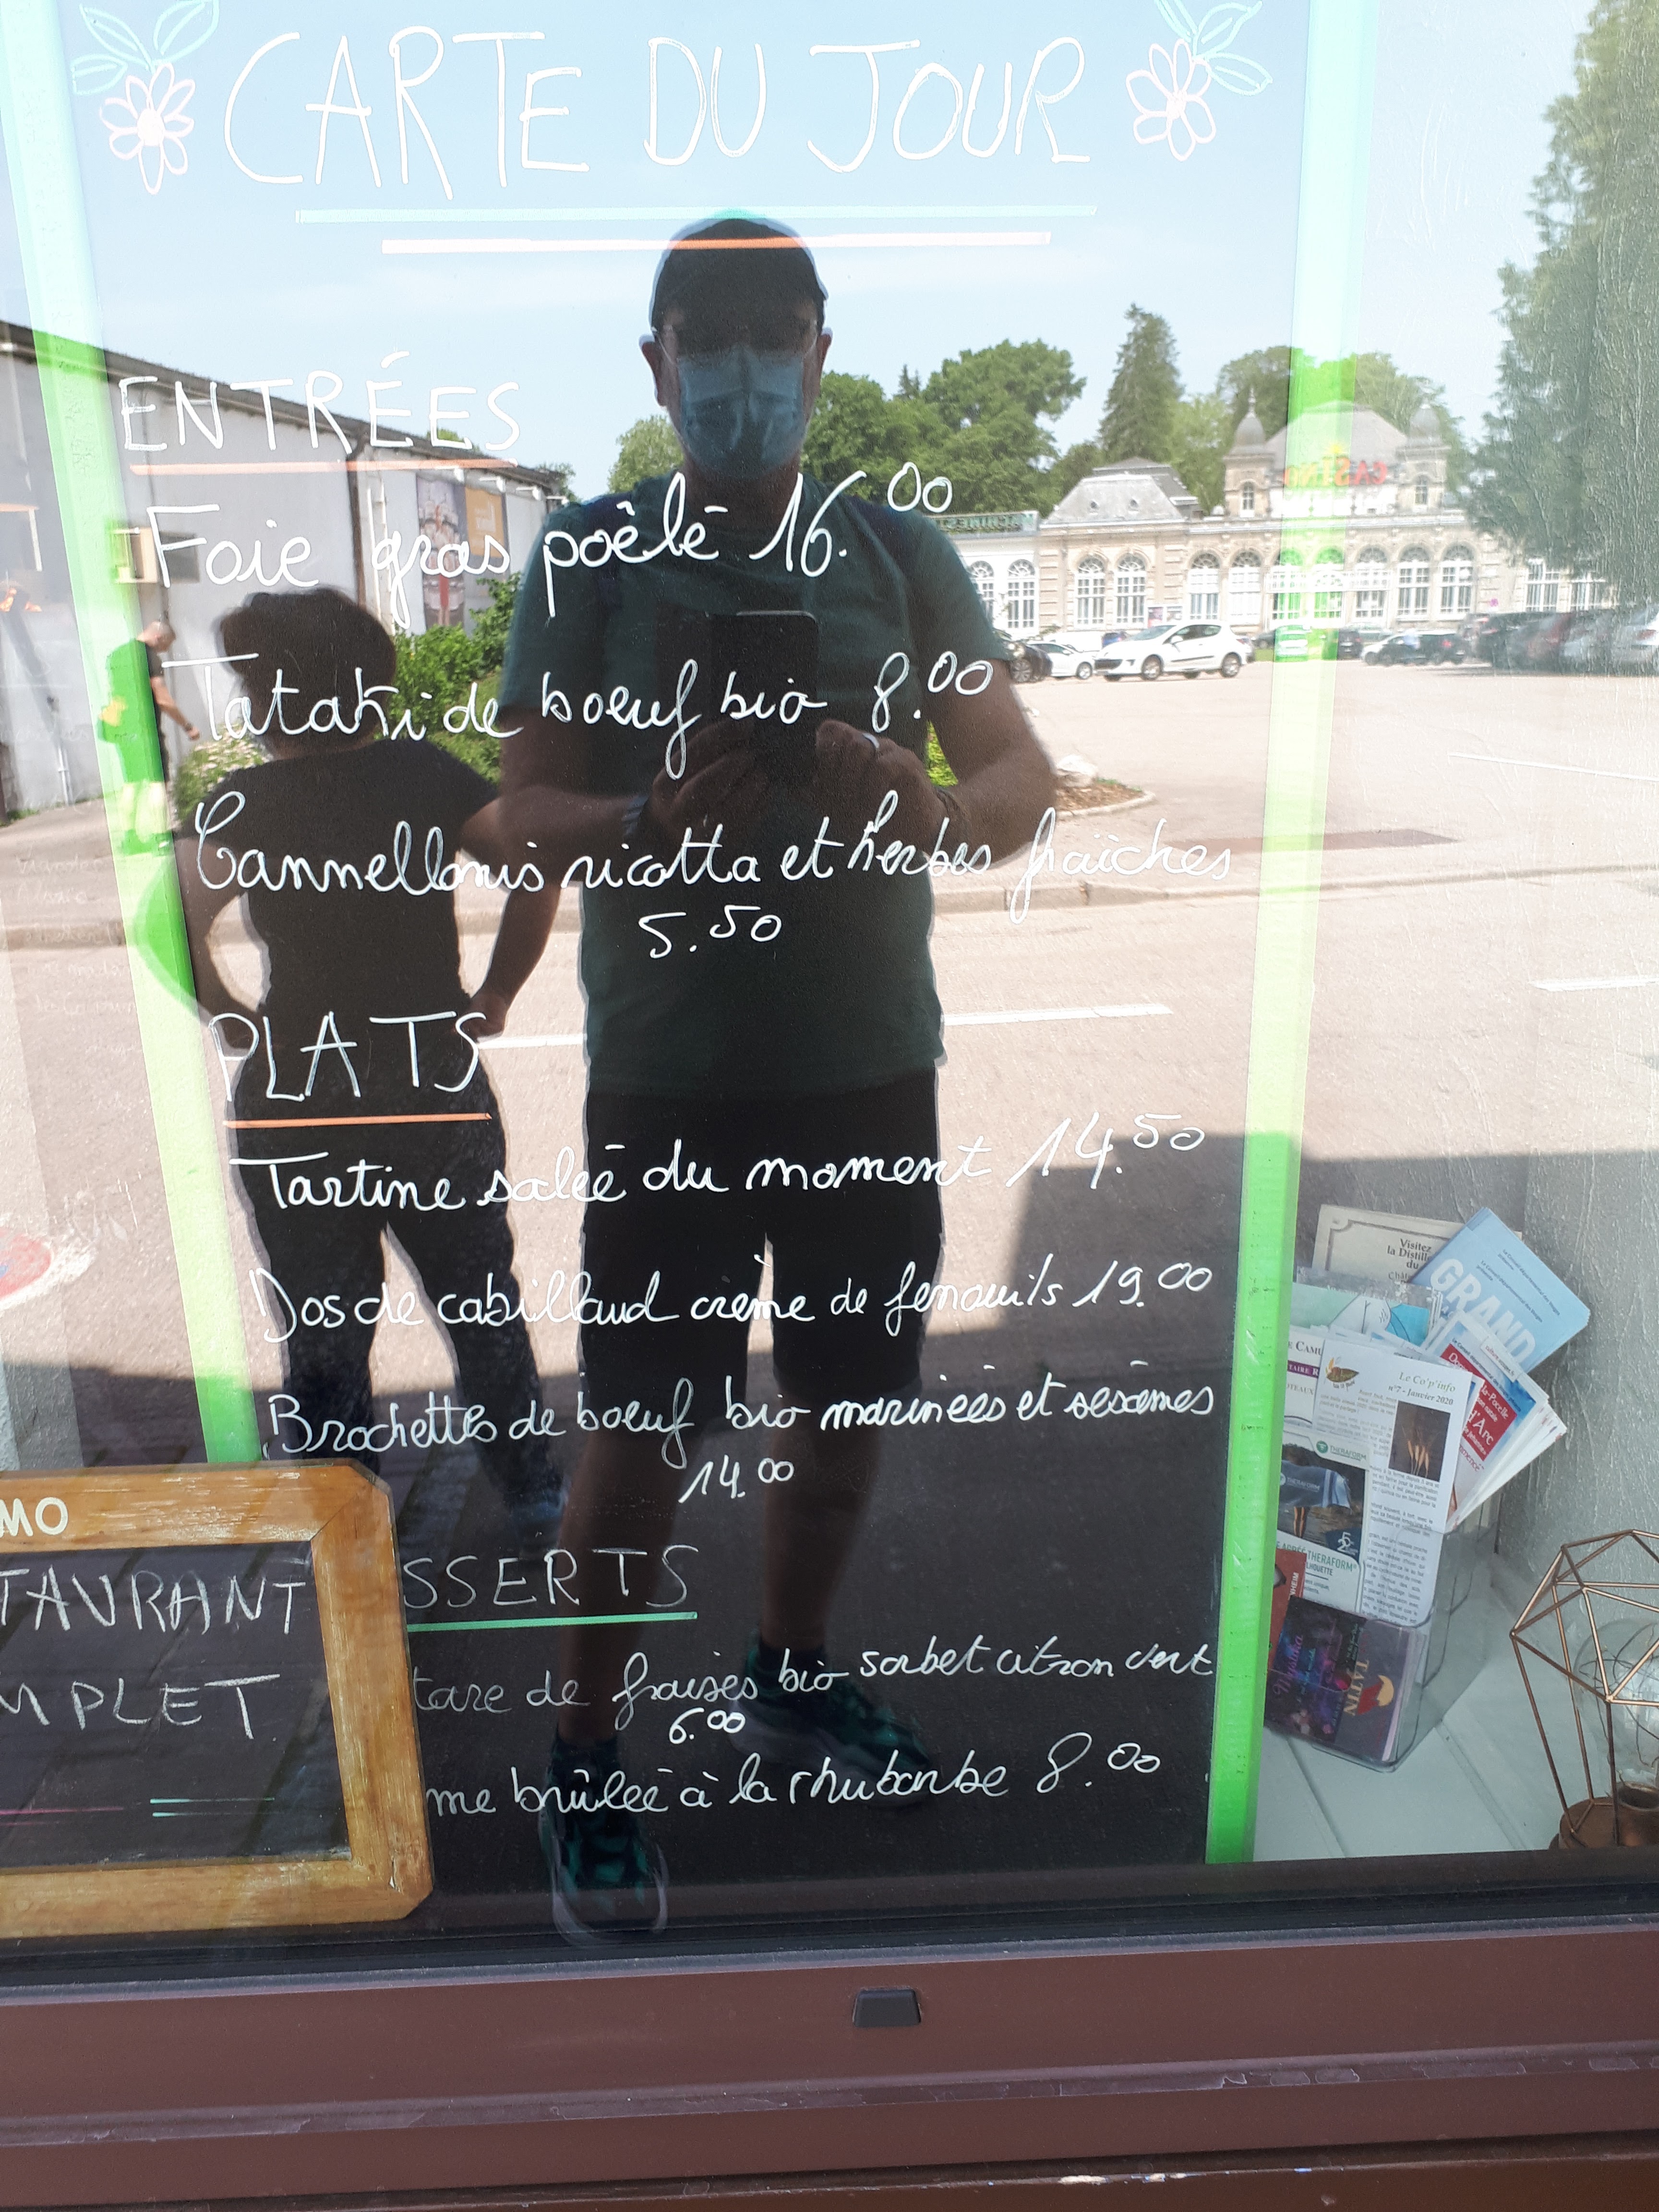 CARTE DU JOUR
ENTRÉES
Foie gras poêlé 16.00
Tataki de boeuf bio 8.00
Cannellonis ricotta et herbes fraîches
5.50
PLATS
Tartine salée du moment 14.50
Dos de cabillaud crème de fenouils 19.00
Brochettes de boeuf bio marinées et sésames
14.00
SSERTS
tare de fraises bio sorbet citron vert
6.00
me brûlée à la rhubarbe 8.00
MO
TAURANT
MPLET
CASINO
Visitez
la Distille
du
GRAND
Le Co'p'info
n°7 - Janvier 2020
THERAFORM